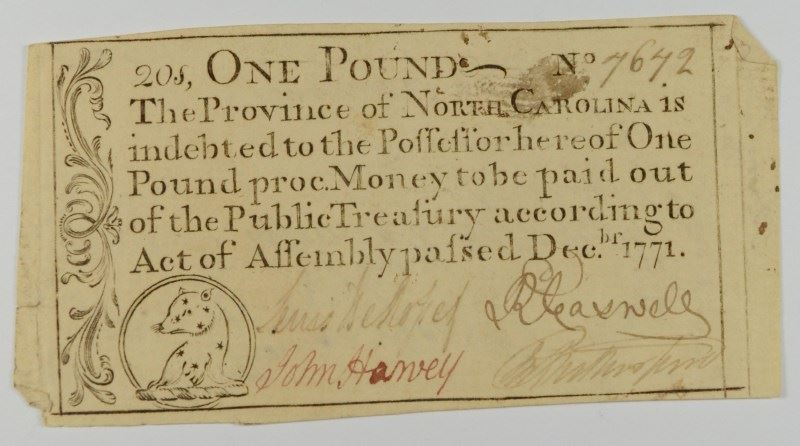 20s, ONE POUND No 7672
The Province of NORTH CAROLINA is
indebted to the Poſſeſſor hereof One
Pound proc. Money to be paid out
of the Public Treaſury according to
Act of Aſſembly paſsed Dec.br 1771.
Lewis DeRosset RCaswell
John Harvey Rutherfurd